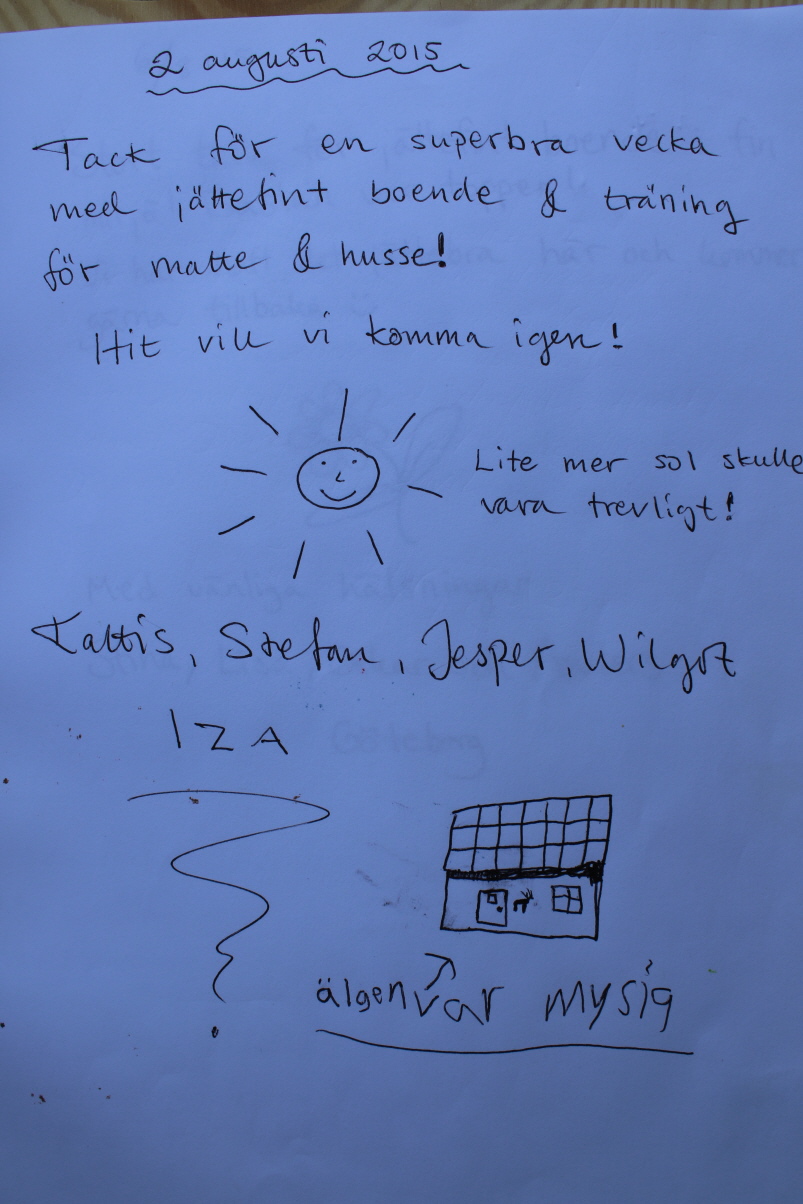 2 augusti 2015
Tack för en superbra vecka
med jättefint boende & träning
för matte & husse!
Hit vill vi komma igen!
Lite mer sol skulle
vara trevligt!
Stefan, Jesper, Wilgot
IZA
älgen var mysig